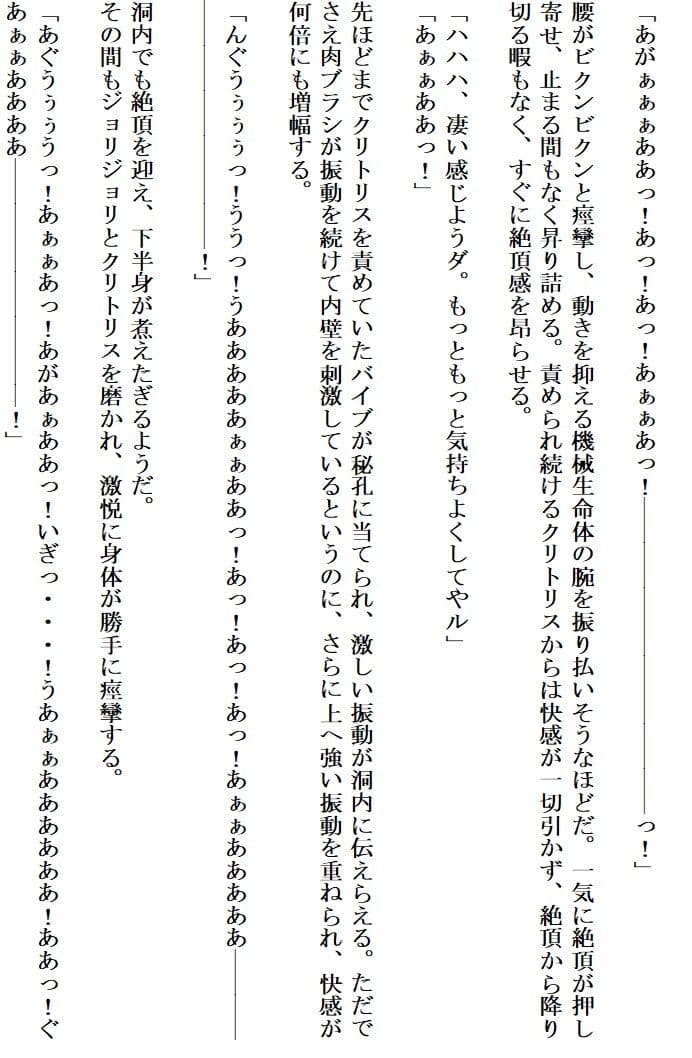 「あがぁぁぁああっ！あっ！あっ！あぁぁあっ！―――――――――――――っ！」
腰がビクンビクンと痙攣し、動きを抑える機械生命体の腕を振り払いそうなほどだ。一気に絶頂が押し
寄せ、止まる間もなく昇り詰める。責められ続けるクリトリスからは快感が一切引かず、絶頂から降り
切る暇もなく、すぐに絶頂感を昂らせる。
「ハハハ、凄い感じようダ。もっともっと気持ちよくしてやル」
「あぁぁああっ！」
先ほどまでクリトリスを責めていたバイブが秘孔に当てられ、激しい振動が洞内に伝えらえる。ただで
さえ肉ブラシが振動を続けて内壁を刺激しているというのに、さらに上へ強い振動を重ねられ、快感が
何倍にも増幅する。
「んぐうぅぅぅっ！ううっ！うああああああぁぁああっ！あっ！あっ！あっ！あぁぁああああああ――――
――――――――――！」
洞内でも絶頂を迎え、下半身が煮えたぎるようだ。
その間もジョリジョリとクリトリスを磨かれ、激悦に身体が勝手に痙攣する。
「あぐうぅぅうっ！あぁぁあっ！あがあぁああっ！いぎっ・・・！うあぁぁああああああ！ああっ！ぐ
あぁぁああああ――――――――――！」